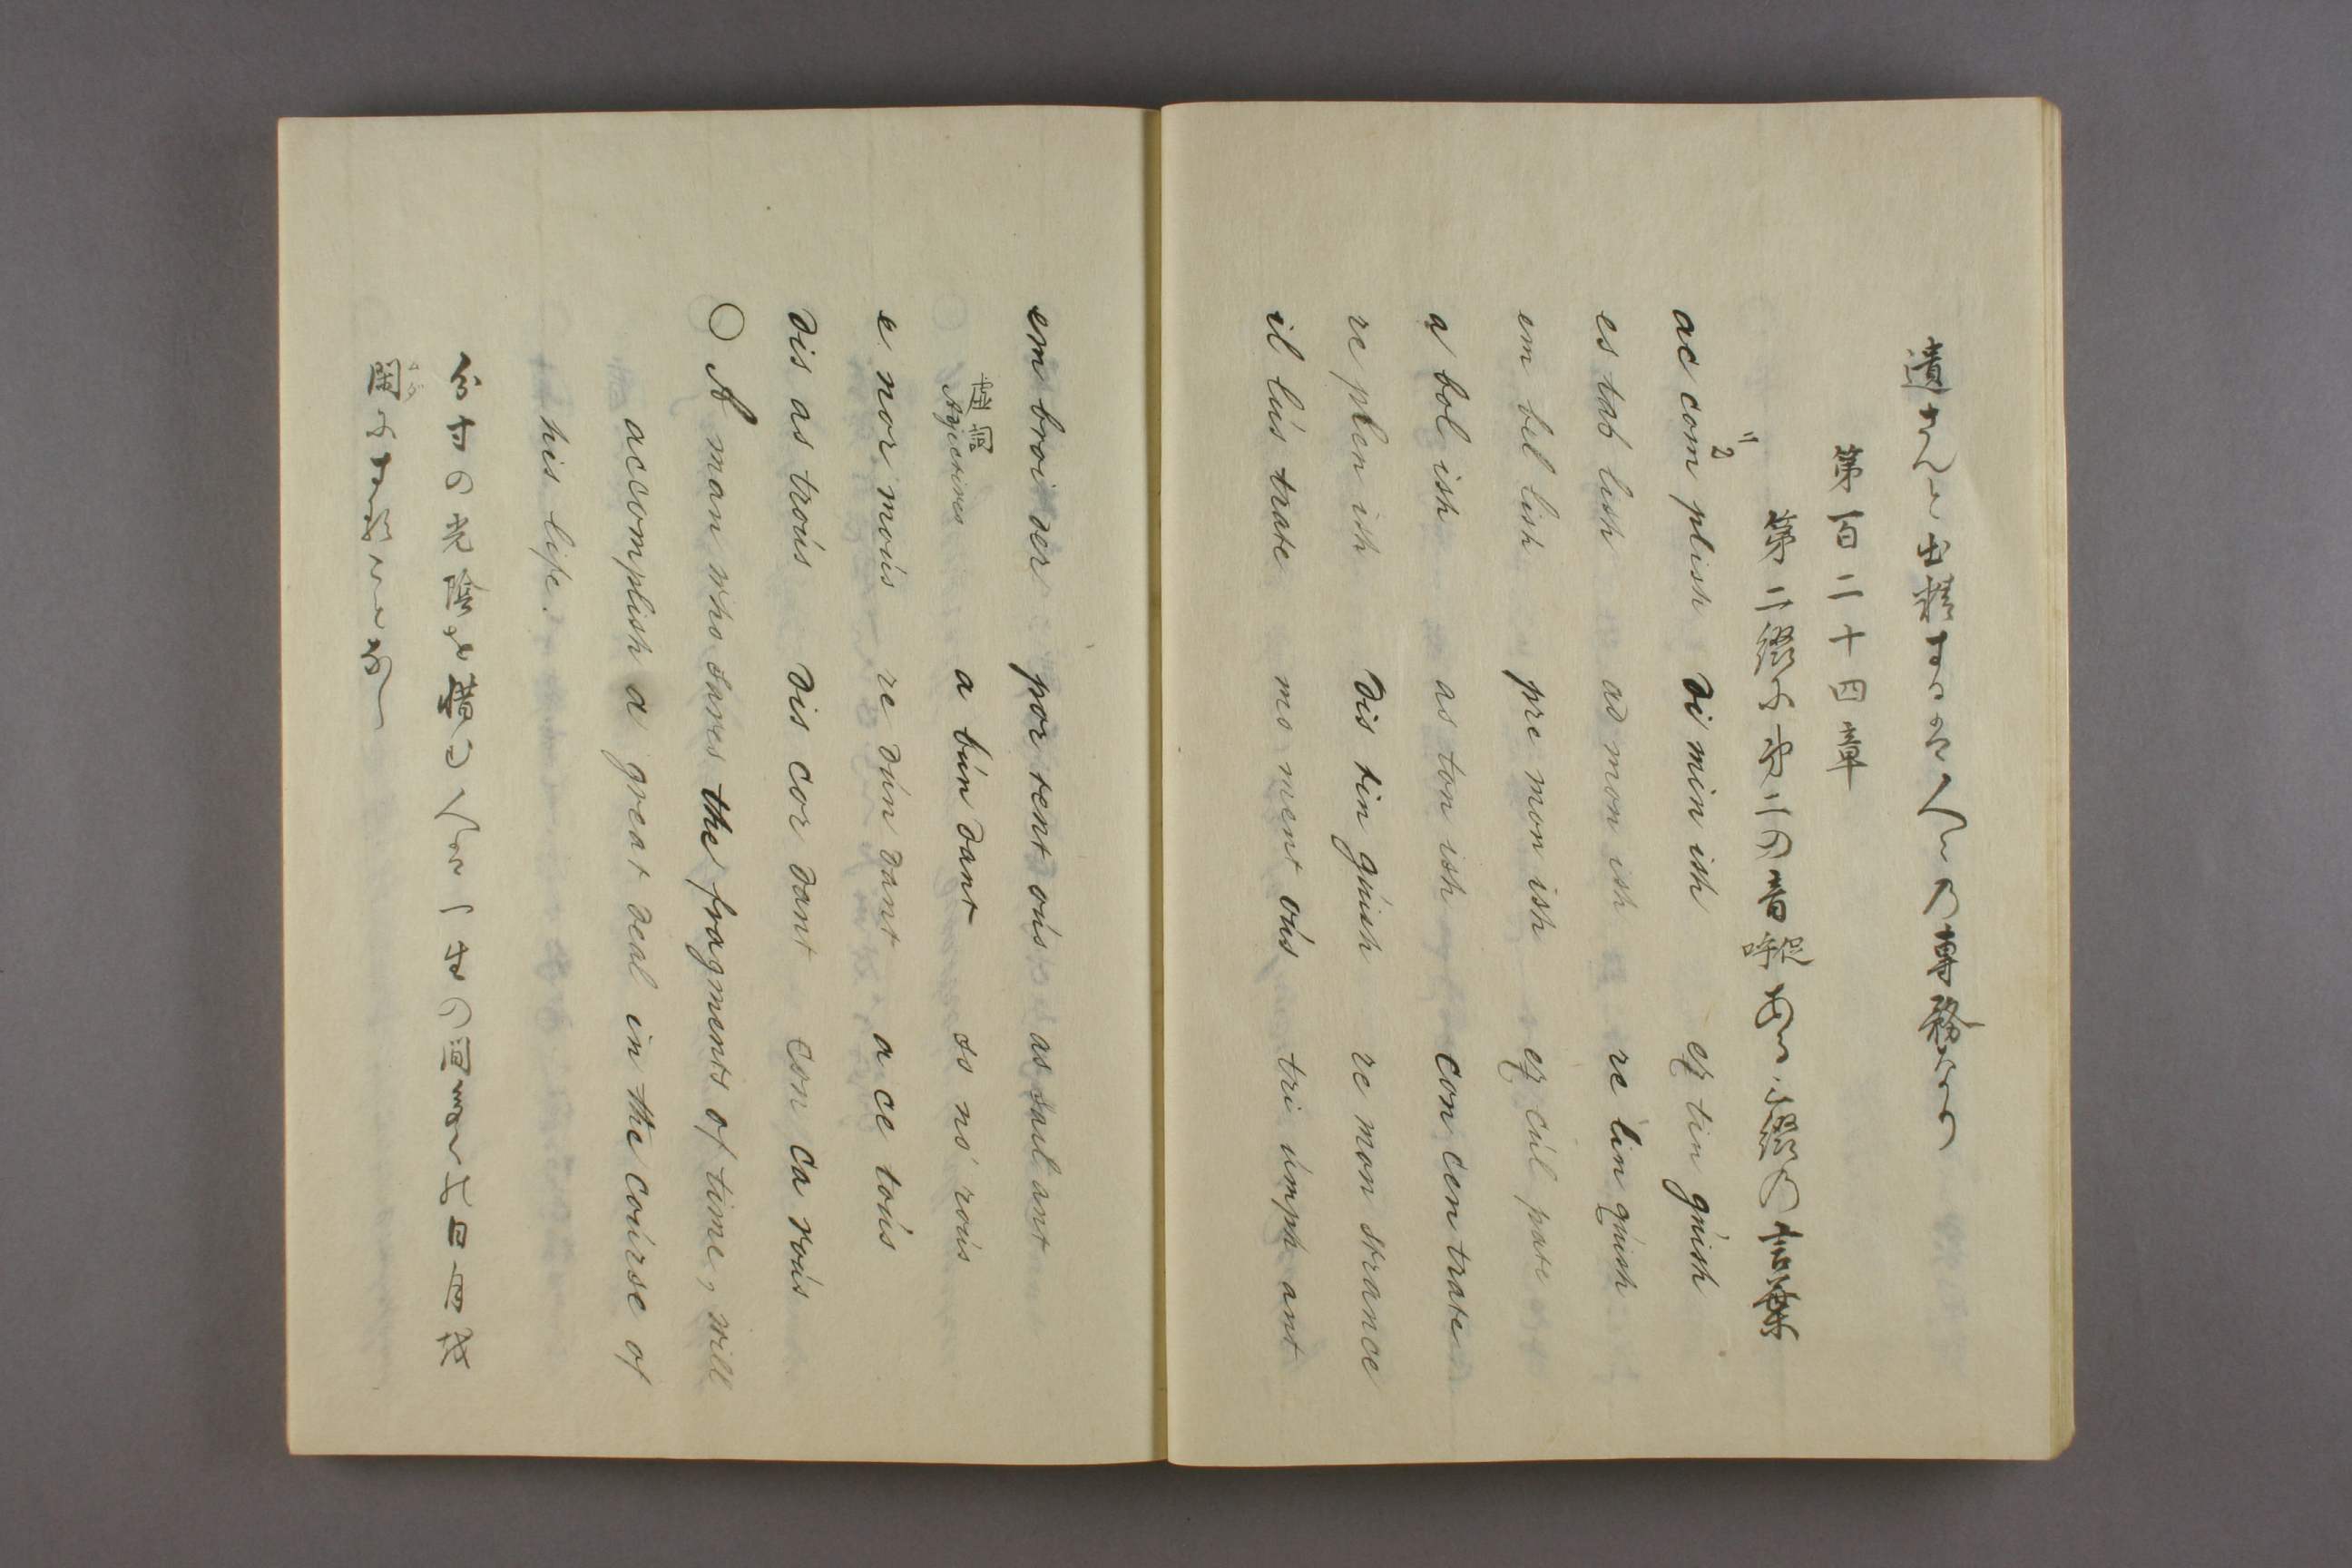 遺さんと出精するは人々の専務なり
第百二十四章
第二綴に第二の音呼促ある三綴の言葉
ac com plish di min ish ex tin guish
es tab lish ad mon ish re lin quish
em bel lish pre mon ish ex cul pate
a bol ish as ton ish con cen trate
re plen ish dis tin guish re mon strance
il lus trate mo ment ous tri umph ant
em broi der por tent ous as sail ant
Adjectives a bun dant so no rous
e nor mous re dun dant a ce tous
dis as trous dis cor dant con ca vous
○ A man who saves the fragments of time, will
accomplish a great deal in the course of
his life.
分寸の光陰を惜む人は一生の間